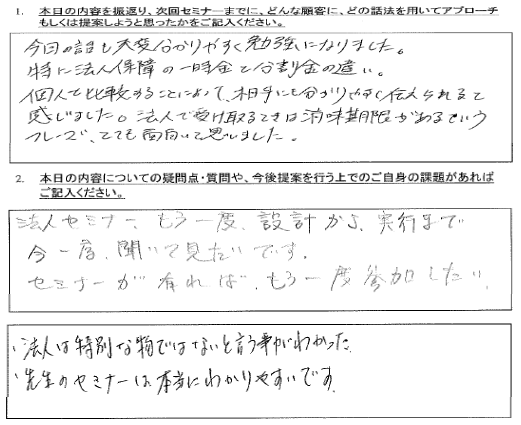 1. 本日の内容を振返り、次回セミナーまでに、どんな顧客に、どの話法を用いてアプローチ
もしくは提案しようと思ったかをご記入ください。
今回の話も大変分かりやすく勉強になりました。
特に法人保障の一時金と分割金の違い。
個人で比較することによって、相手にも分かりやすく伝えられると
感じました。法人で受け取るときは消味期限があるという
フレーズ、とても面白いと思いました。
2. 本日の内容についての疑問点・質問や、今後提案を行う上でのご自身の課題があれば
ご記入ください。
法人セミナー、もう一度、設計から、実行まで
今一度、聞いて見たいです。
セミナーが有れば、もう一度参加したい。
・法人は特別な物ではないと言う事がわかった。
・先生のセミナーは本当にわかりやすいです。